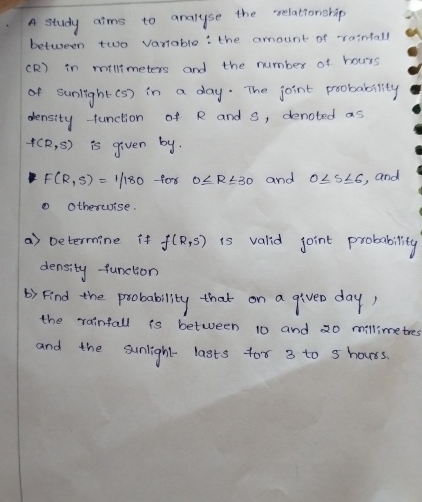 A study aims to analyse the relationship
between two variable : the amount of rainfall
(R) in millimeters and the number of hours
of sunlight (S) in a day. The joint probability
density function of R and S, denoted as
f(R,S) is given by.
F(R,S) = 1/180 for 0≤R≤30 and 0≤S≤6, and
0 otherwise.
a) Determine if f(R,S) is valid joint probability
density function
b) Find the probability that on a given day,
the rainfall is between 10 and 20 millimetres
and the sunlight lasts for 3 to 5 hours.